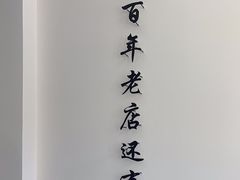 百年老店还